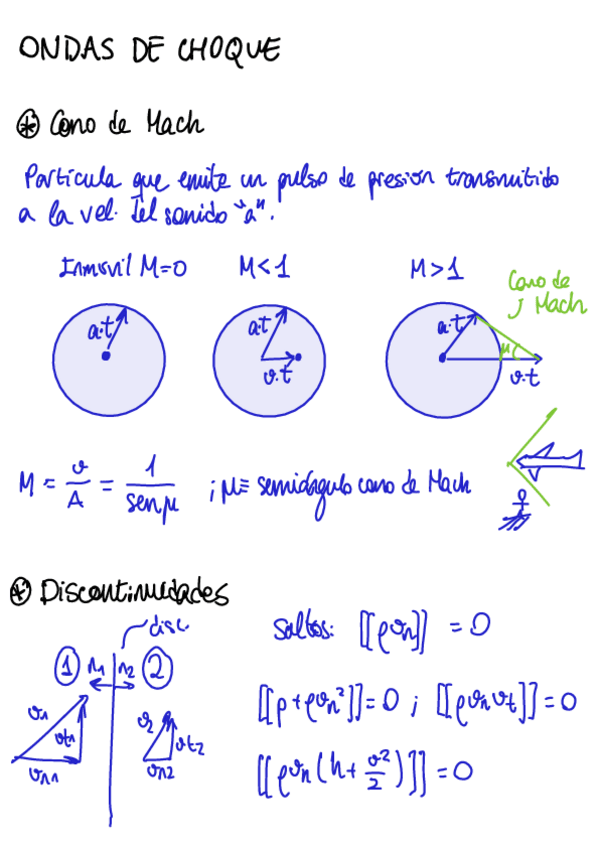 ONDAS DE CHOQUE
* Cono de Mach
Partícula que emite un pulso de presion transmitido
a la vel. del sonido "a".
Inmovil M=0
M<1
M>1
Cono de
Mach
a·t
a·t
v·t
a·t
μ
v·t
M = v/A = 1/sen μ ; μ ≡ semiángulo cono de Mach
* Discontinuidades
disc
Saltos: [[ρvn]] = 0
1 n1 n2 2
v1 vt1 vn1
v2 vt2 vn2
[[p+ρvn²]]=0 ; [[ρvn vt]]=0
[[ρvn(h+v²/2)]]=0